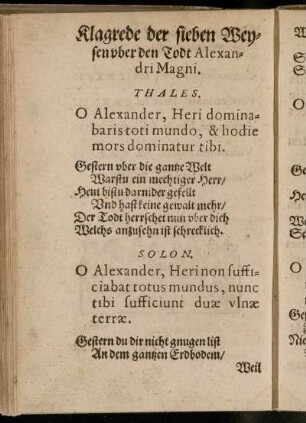 Klagrede der sieben Wey-
sen vber den Todt Alexan-
dri Magni.
THALES.
O Alexander, Heri domina-
baris toti mundo, & hodie
mors dominatur tibi.
Gestern vber die gantze Welt
Warstu ein mechtiger Herr/
Heut bistu darnider gefellt
Vnd hast keine gewalt mehr/
Der Todt herrschet nun vber dich
Welchs anzusehn ist schrecklich.
SOLON.
O Alexander, Heri non suffi-
ciabat totus mundus, nunc
tibi sufficiunt duæ vlnæ
terræ.
Gestern du dir nicht gnugen list
An dem gantzen Erdbodem/
Weil